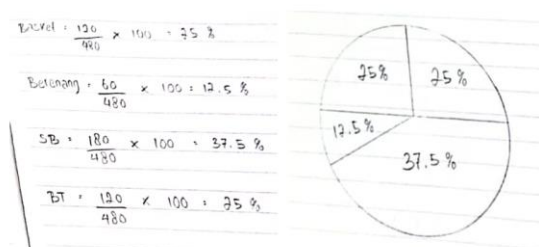 Basket = 120/480 × 100 = 25 %
Berenang = 60/480 × 100 = 12.5 %
SB = 180/480 × 100 = 37.5 %
BT = 120/480 × 100 = 25 %
25%
25%
12.5%
37.5%